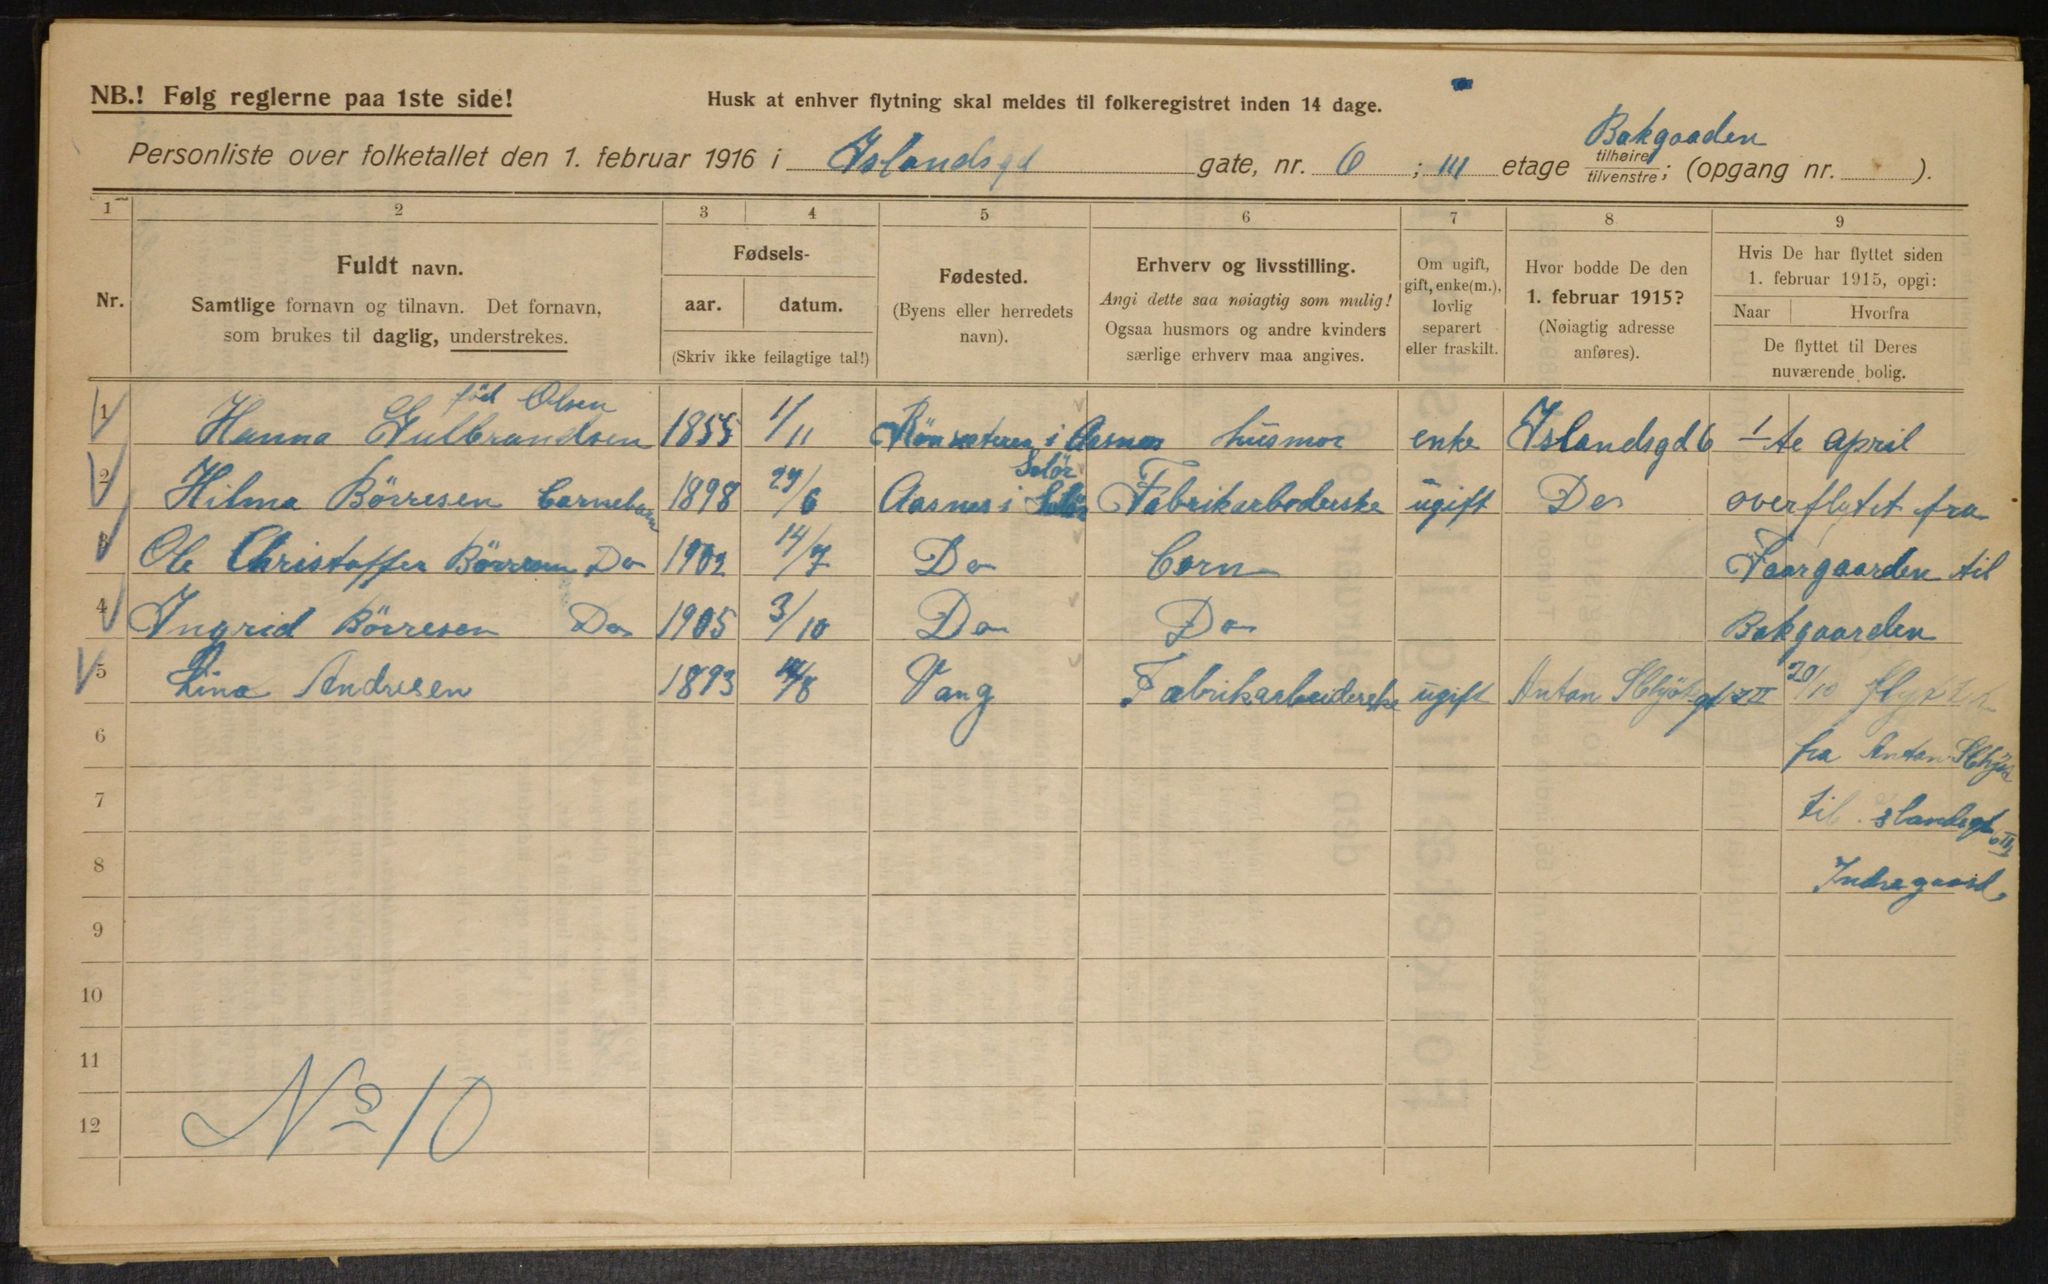 NB.! Følg reglerne paa 1ste side!
Husk at enhver flytning skal meldes til folkeregistret inden 14 dage.
Personliste over folketallet den 1. februar 1916 i Islandsgd gate, nr. 6 ; III etage Bakgaaden tilhøire tilvenstre; (opgang nr. ).
1 2 3 4 5 6 7 8 9
Nr.
Fuldt navn.
Samtlige fornavn og tilnavn. Det fornavn,
som brukes til daglig, understrekes.
Fødsels-
aar. datum.
(Skriv ikke feilagtige tal!)
Fødested.
(Byens eller herredets
navn).
Erhverv og livsstilling.
Angi dette saa nøiagtig som mulig!
Ogsaa husmors og andre kvinders
særlige erhverv maa angives.
Om ugift,
gift, enke(m.),
lovlig
separert
eller fraskilt.
Hvor bodde De den
1. februar 1915?
(Nøiagtig adresse
anføres).
Hvis De har flyttet siden
1. februar 1915, opgi:
Naar Hvorfra
De flyttet til Deres
nuværende bolig.
1 Hanna Gulbrandsen föd Olsen 1855 1/11 i Aasnes Solör husmor enke Islandsgd 6 1/te april
2 Hilma Börresen Barnebarn 1898 29/6 Aasnes i Solör Fabrikarboderske ugift Do overflytet fra
3 Ole Christoffer Börresen Do 1902 14/7 Do Barn Foorgaarden til
4 Ingrid Börresen Do 1905 3/10 Do Do Bakgaarden
5 Lina Andresen 1893 /8 Vang Fabrikarbeiderske ugift Anton Schjöts gt II 20/10 flyttet
6 fra Anton Schjöts
7 til Islandsgt 6 III
8 Indregaard
9
10
11
12
No 10